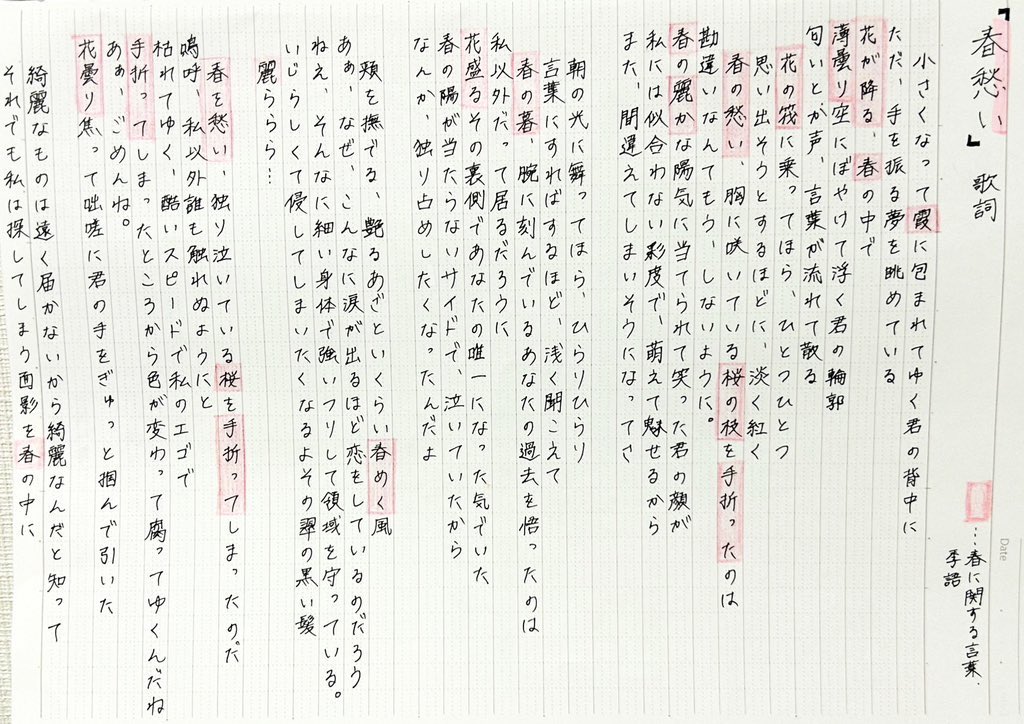 「春愁い」 歌詞
…春に関する言葉.
季語
Date
小さくなって霞に包まれてゆく君の背中に
ただ、手を振る夢を眺めている
花が降る、春の中で
薄曇り空にぼやけて浮く君の輪郭
匂いとか声、言葉が流れて散る
花の筏に乗ってほら、ひとつひとつ
思い出そうとするほどに、淡く紅く
春の愁い、胸に咲いている桜の枝を手折ったのは
勘違いなんてもう、しないように。
春の麗かな陽気に当てられて笑った君の顔が
私には似合わない彩度で、萌えて魅せるから
また、間違えてしまいそうになってさ
朝の光に舞ってほら、ひらりひらり
言葉にすればするほど、浅く聞こえて
春の暮、腕に刻んでいるあなたの過去を悟ったのは
私以外だって居るだろうに
花盛るその裏側であなたの唯一になった気でいた
春の陽が当たらないサイドで、泣いていたから
なんか、独り占めしたくなったんだよ
頬を撫でる、艶るあざといくらい春めく風
あぁ、なぜ、こんなに涙が出るほど恋をしているのだろう
ねえ、そんなに細い身体で強いフリして領域を守っている。
いじらしくて侵してしまいたくなるよその翠の黒い髪
麗らら…
春を愁い、独り泣いている桜を手折ってしまったのだ
嗚呼、私以外誰も触れぬようにと
枯れてゆく、酷いスピードで私のエゴで
手折ってしまったところから色が変わって腐ってゆくんだね
あぁ、ごめんね。
花曇り焦って咄嗟に君の手をぎゅっと掴んで引いた
綺麗なものは遠く届かないから綺麗なんだと知って
それでも私は探してしまう面影を春の中に